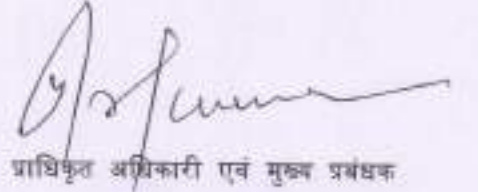 प्राधिकृत अधिकारी एवं मुख्य प्रबंधक